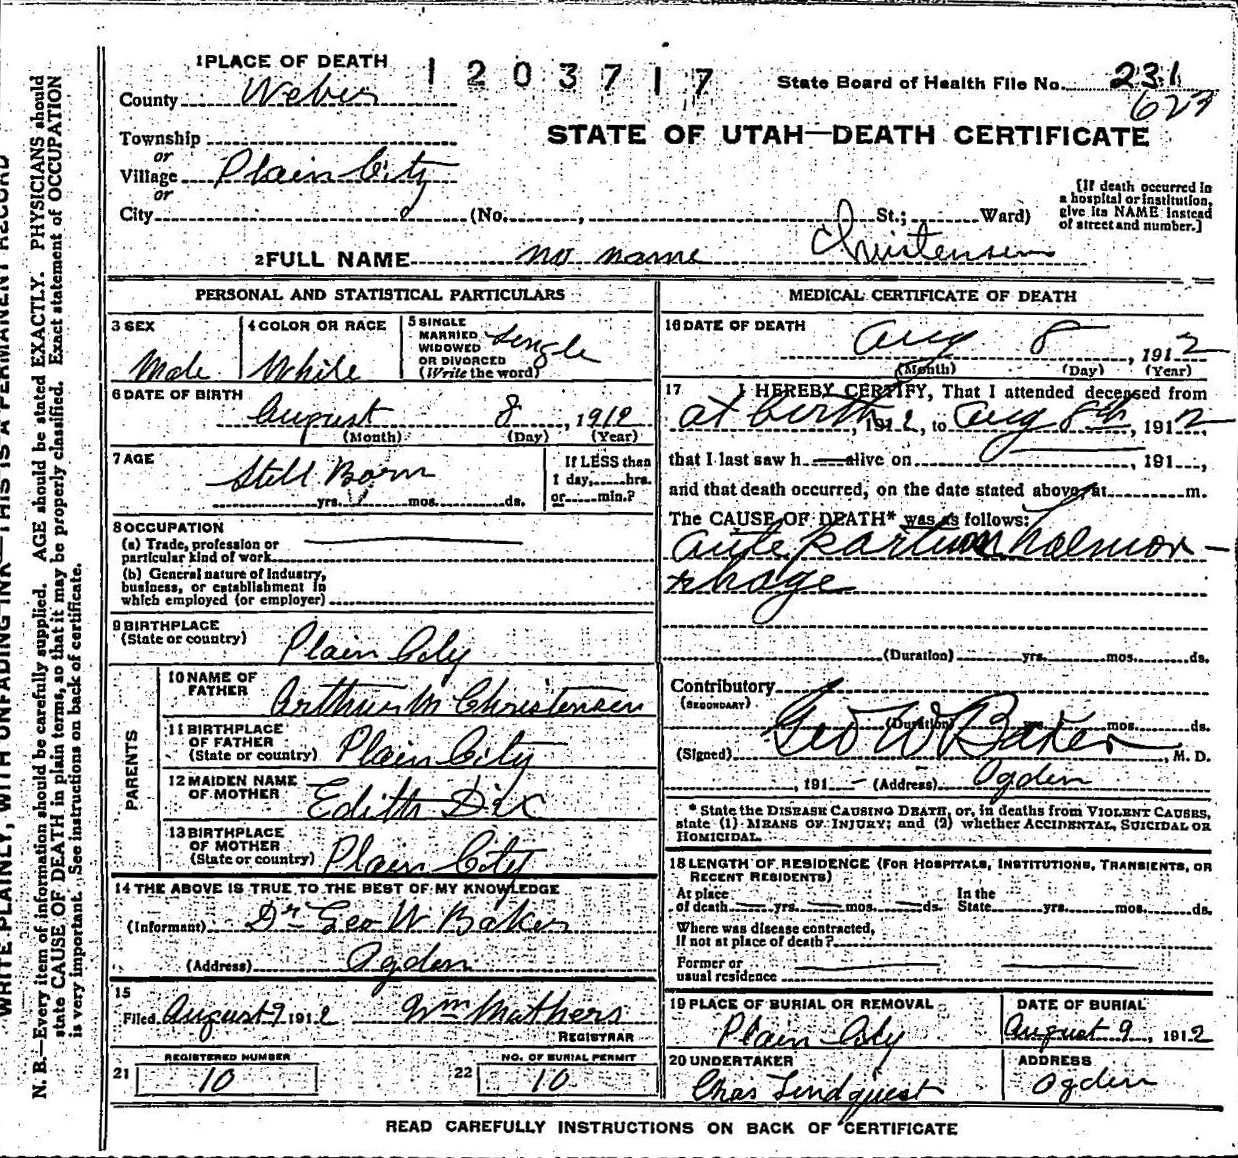 1 PLACE OF DEATH 1203717 State Board of Health File No. 231
County Weber 627
STATE OF UTAH—DEATH CERTIFICATE
Township
or
Village Plain City
or
City (No. , St.; Ward)
[If death occurred in
a hospital or institution,
give its NAME instead
of street and number.]
2 FULL NAME no name Christensen
PERSONAL AND STATISTICAL PARTICULARS
3 SEX
Male
4 COLOR OR RACE
White
5 SINGLE
MARRIED
WIDOWED
OR DIVORCED
(Write the word)
Single
6 DATE OF BIRTH
August 8, 1912
(Month) (Day) (Year)
7 AGE
Still Born
yrs. mos. ds.
If LESS than
1 day, hrs.
or min.?
8 OCCUPATION
(a) Trade, profession or
particular kind of work
(b) General nature of industry,
business, or establishment in
which employed (or employer)
9 BIRTHPLACE
(State or country)
Plain City
PARENTS
10 NAME OF
FATHER
Arthur M Christensen
11 BIRTHPLACE
OF FATHER
(State or country)
Plain City
12 MAIDEN NAME
OF MOTHER
Edith Dix
13 BIRTHPLACE
OF MOTHER
(State or country)
Plain City
14 THE ABOVE IS TRUE TO THE BEST OF MY KNOWLEDGE
(Informant) Dr Geo W Baker
(Address) Ogden
15
Filed August 9 1912 Wm Mathers
REGISTRAR
REGISTERED NUMBER
21 10
NO. OF BURIAL PERMIT
22 10
MEDICAL CERTIFICATE OF DEATH
16 DATE OF DEATH
Aug 8, 1912
(Month) (Day) (Year)
17 I HEREBY CERTIFY, That I attended deceased from
at birth, 1912, to Aug 8th, 1912,
that I last saw h alive on , 191 ,
and that death occurred, on the date stated above, at m.
The CAUSE OF DEATH* was as follows:
Ante partum haemor-
rhage
(Duration) yrs. mos. ds.
Contributory
(SECONDARY)
(Duration) yrs. mos. ds.
(Signed) Geo W Baker, M. D.
, 191 – (Address) Ogden
* State the DISEASE CAUSING DEATH, or, in deaths from VIOLENT CAUSES,
state (1) MEANS OF INJURY; and (2) whether ACCIDENTAL, SUICIDAL OR
HOMICIDAL.
18 LENGTH OF RESIDENCE (FOR HOSPITALS, INSTITUTIONS, TRANSIENTS, OR
RECENT RESIDENTS)
At place In the
of death yrs. mos. ds. State yrs. mos. ds.
Where was disease contracted,
if not at place of death?
Former or
usual residence
19 PLACE OF BURIAL OR REMOVAL
Plain City
DATE OF BURIAL
August 9, 1912
20 UNDERTAKER
Chas Lindquest
ADDRESS
Ogden
READ CAREFULLY INSTRUCTIONS ON BACK OF CERTIFICATE
WRITE PLAINLY, WITH UNFADING INK—THIS IS A PERMANENT RECORD
N. B.—Every item of information should be carefully supplied. AGE should be stated EXACTLY. PHYSICIANS should
state CAUSE OF DEATH in plain terms, so that it may be properly classified. Exact statement of OCCUPATION
is very important. See instructions on back of certificate.